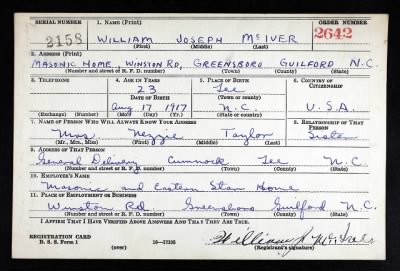 SERIAL NUMBER 1. NAME (Print) ORDER NUMBER
2158 WILLIAM JOSEPH McIVER 2642
(First) (Middle) (Last)
2. ADDRESS (Print)
MASONIC HOME, WINSTON RD, GREENSBORO GUILFORD N.C.
(Number and street or R. F. D. number) (Town) (County) (State)
3. TELEPHONE 4. AGE IN YEARS 5. PLACE OF BIRTH 6. COUNTRY OF CITIZENSHIP
23 Lee
DATE OF BIRTH (Town or county)
Aug 17 1917 N.C. U.S.A.
(Exchange) (Number) (Mo.) (Day) (Yr.) (State or country)
7. NAME OF PERSON WHO WILL ALWAYS KNOW YOUR ADDRESS 8. RELATIONSHIP OF THAT PERSON
Mrs Taylor Sister
(Mr., Mrs., Miss) (First) (Middle) (Last)
9. ADDRESS OF THAT PERSON
General Delivery Cumnock Lee N.C.
(Number and street or R. F. D. number) (Town) (County) (State)
10. EMPLOYER'S NAME
Masonic and Eastern Star Home
11. PLACE OF EMPLOYMENT OR BUSINESS
Winston Rd. Greensboro Guilford N.C.
(Number and street or R. F. D. number) (Town) (County) (State)
I AFFIRM THAT I HAVE VERIFIED ABOVE ANSWERS AND THAT THEY ARE TRUE.
REGISTRATION CARD
D. S. S. Form 1 (over) 16—17105 William J. McIver
(Registrant's signature)